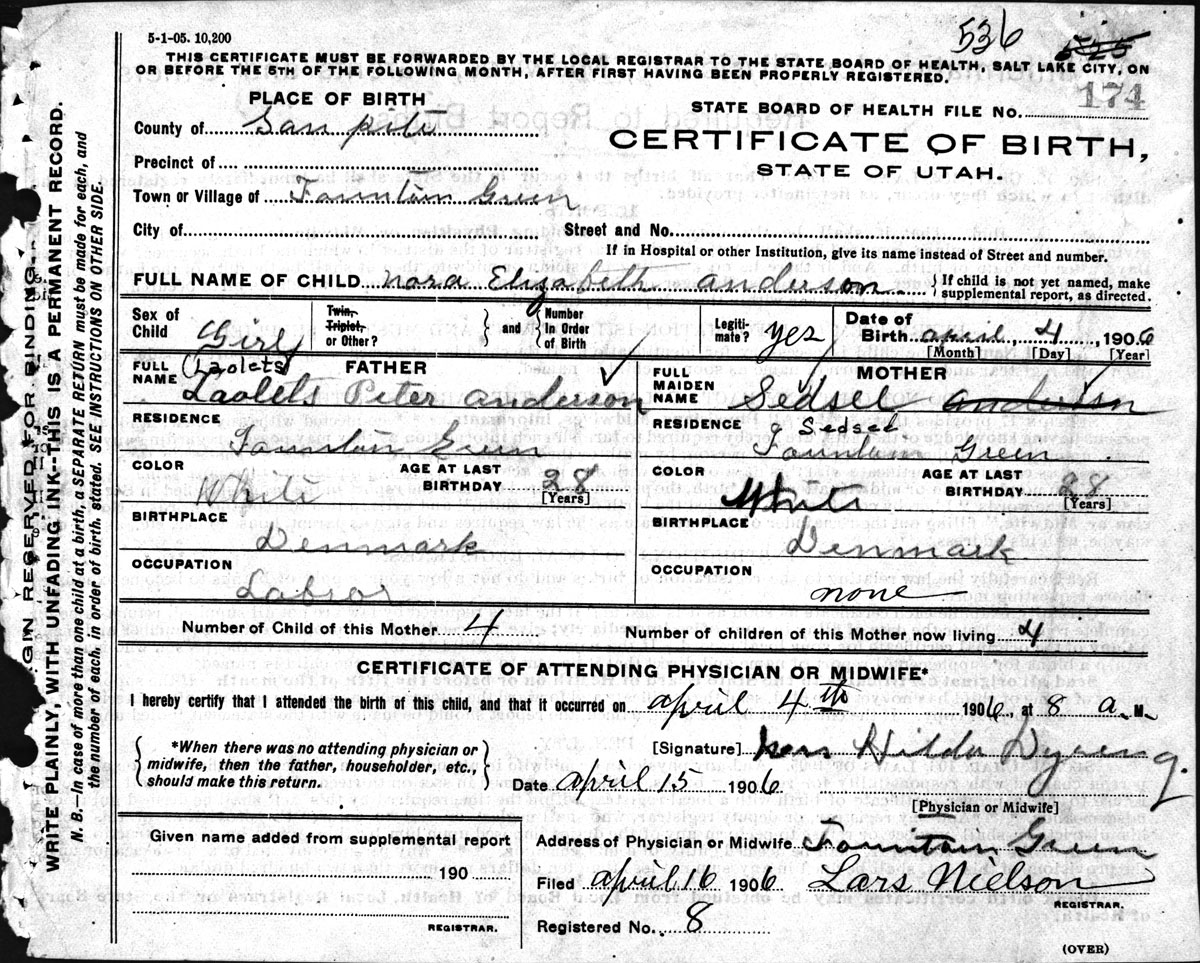 5-1-05. 10,200
536 525
THIS CERTIFICATE MUST BE FORWARDED BY THE LOCAL REGISTRAR TO THE STATE BOARD OF HEALTH, SALT LAKE CITY, ON
OR BEFORE THE 5TH OF THE FOLLOWING MONTH, AFTER FIRST HAVING BEEN PROPERLY REGISTERED.
174
PLACE OF BIRTH
STATE BOARD OF HEALTH FILE No.
County of San pete
CERTIFICATE OF BIRTH,
STATE OF UTAH.
Precinct of
Town or Village of Fountain Green
City of Street and No.
If in Hospital or other Institution, give its name instead of Street and number.
FULL NAME OF CHILD nora Elizabeth anderson { If child is not yet named, make
supplemental report, as directed.
Sex of
Child Girl
Twin,
Triplet,
or Other? } and { Number
In Order
of Birth
Legiti-
mate? yes
Date of
Birth april, 4, 1906
[Month] [Day] [Year]
FULL
NAME (Laolets) FATHER
Laolets Peter anderson
FULL
MAIDEN
NAME MOTHER
Sedsel anderson
RESIDENCE
Fountain Green
RESIDENCE Sedsel
Fountain Green
COLOR
White
AGE AT LAST
BIRTHDAY 28
[Years]
COLOR
White
AGE AT LAST
BIRTHDAY 28
[Years]
BIRTHPLACE
Denmark
BIRTHPLACE
Denmark
OCCUPATION
Labror
OCCUPATION
none
Number of Child of this Mother 4 Number of children of this Mother now living 4
CERTIFICATE OF ATTENDING PHYSICIAN OR MIDWIFE*
I hereby certify that I attended the birth of this child, and that it occurred on april 4th 1906, at 8 a. M.
{ *When there was no attending physician or
midwife, then the father, householder, etc.,
should make this return. }
[Signature] Hilda Dyreng
Date april 15 1906
[Physician or Midwife]
Given name added from supplemental report
190
REGISTRAR.
Address of Physician or Midwife Fountain Green
Filed april 16 1906 Lars Nielson
REGISTRAR.
Registered No. 8
(OVER)
MARGIN RESERVED FOR BINDING.
WRITE PLAINLY, WITH UNFADING INK--THIS IS A PERMANENT RECORD.
N. B.--In case of more than one child at a birth, a SEPARATE RETURN must be made for each, and
the number of each, in order of birth, stated. SEE INSTRUCTIONS ON OTHER SIDE.